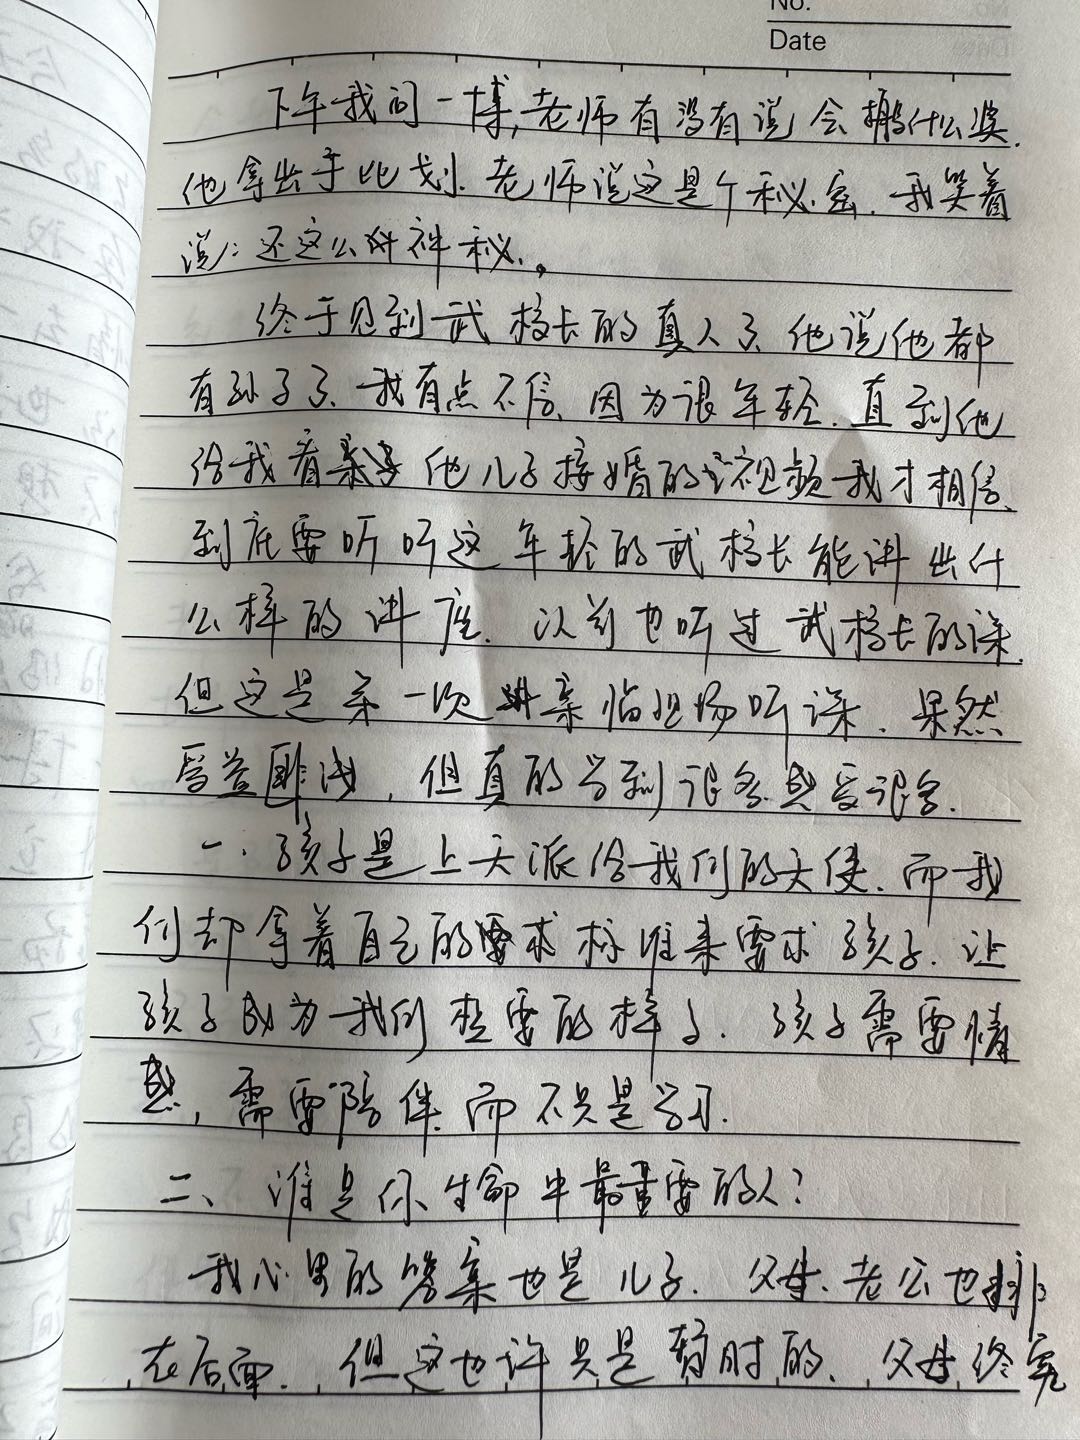 No.
Date
下午我问一博,老师有没有说会搬什么奖.
他拿出手比划.老师说这是个秘密.我笑着
说:还这么神秘.。
终于见到武校长的真人了.他说他都
有孙子了.我有点不信.因为很年轻.直到他
给我看他儿子接婚的视频我才相信.
到底要听听这年轻的武校长能讲出什
么样的讲座.以前也听过武校长的课.
但这是第一次亲临现场听课.果然
受益匪浅,但真的学到很多感受很多.
一.孩子是上天派给我们的天使.而我
们却拿着自己的要求标准来要求孩子.让
孩子成为我们想要的样子.孩子需要情
感,需要陪伴.而不只是学习.
二、谁是你生命中最重要的人?
我心里的答案也是儿子.父母.老公也排
在后面.但这也许只是暂时的.父母终究